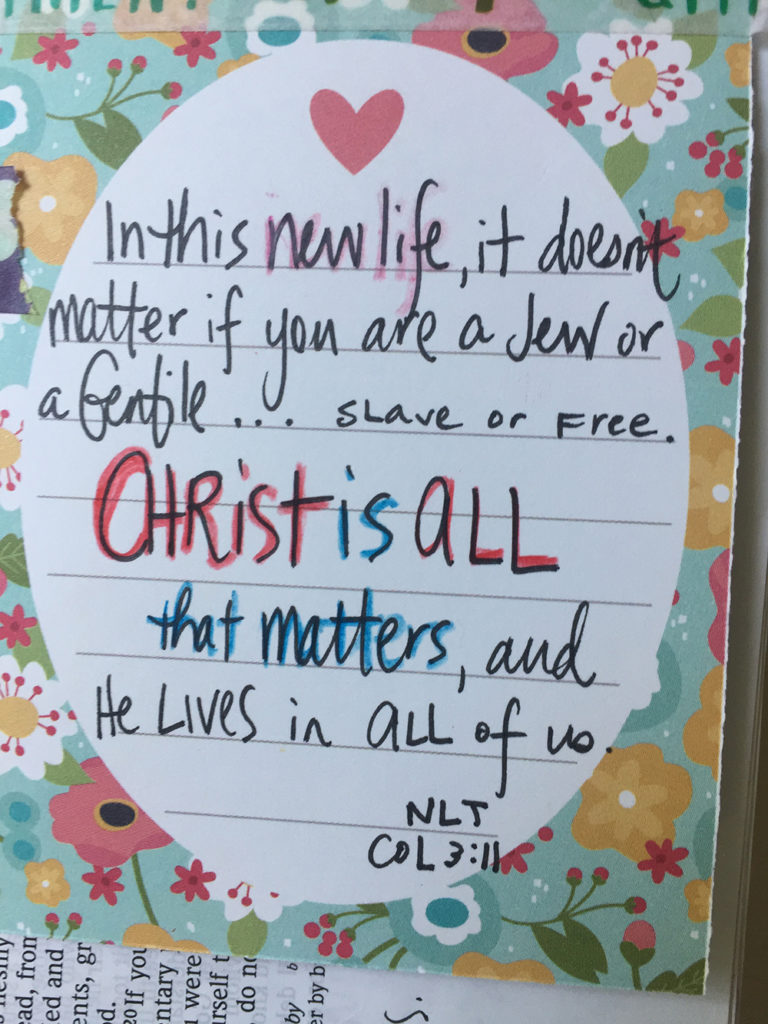 In this new life, it doesn't
matter if you are a Jew or
a Gentile... SLave or Free.
CHRist is aLL
that matters, and
He LIVES in aLL of us.
NLT
COL 3:11
ead, from
ed and
ents, gr
od.
20 If you
entary
were
urself t
do no
by b
er by b